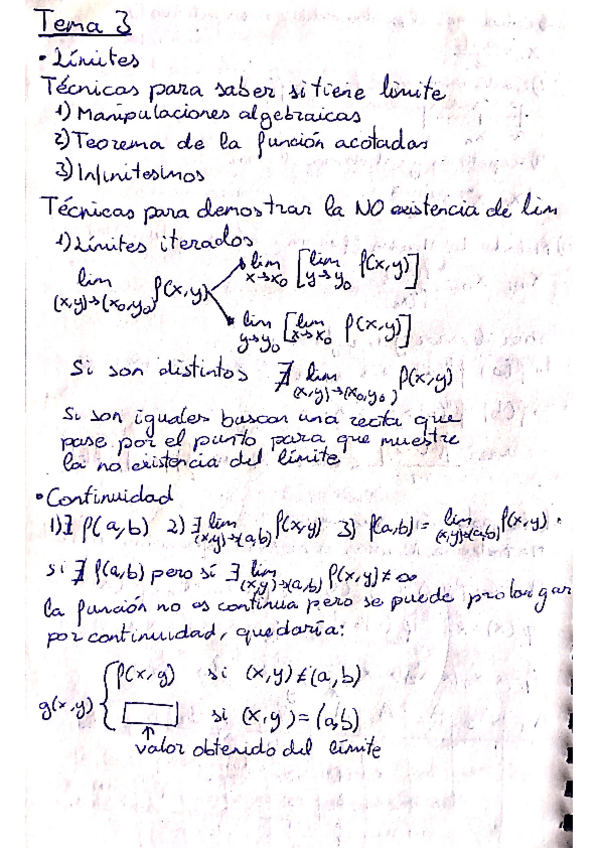 Tema 3
• Límites
Técnicas para saber si tiene límite
1) Manipulaciones algebraicas
2) Teorema de la función acotadas
3) Infinitesimos
Técnicas para demostrar la NO existencia de lim
1) Límites iterados
lim (x,y)→(x₀,y₀) f(x,y)
lim x→x₀ [lim y→y₀ f(x,y)]
lim y→y₀ [lim x→x₀ f(x,y)]
Si son distintos ∄ lim (x,y)→(x₀,y₀) f(x,y)
Si son iguales buscar una recta que
pase por el punto para que muestre
la no existencia del límite
• Continuidad
1) ∃ f(a,b) 2) ∃ lim (x,y)→(a,b) f(x,y) 3) f(a,b) = lim (x,y)→(a,b) f(x,y).
si ∄ f(a,b) pero sí ∃ lim (x,y)→(a,b) f(x,y) ≠ ∞
la función no es continua pero se puede prolongar
por continuidad, quedaría:
g(x,y) { f(x,y) si (x,y) ≠ (a,b)
si (x,y) = (a,b)
↑
valor obtenido del límite